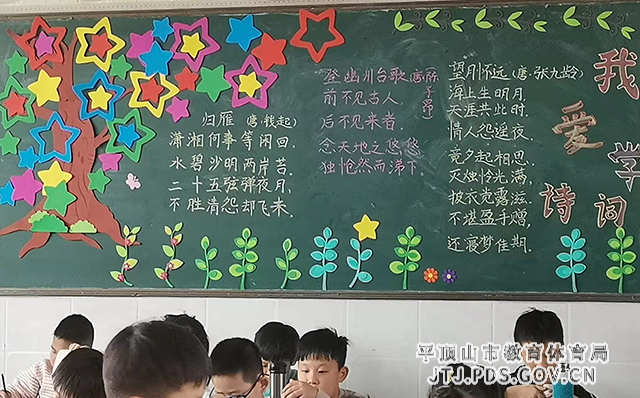 归雁 (唐·钱起)
潇湘何事等闲回,
水碧沙明两岸苔。
二十五弦弹夜月,
不胜清怨却飞来.
登幽州台歌(唐 陈子昂
前不见古人,
后不见来者.
念天地之悠悠
独怆然而涕下.
望月怀远(唐:张九龄)
海上生明月
天涯共此时.
情人怨遥夜.
竟夕起相思.
灭烛怜光满,
披衣觉露滋.
不堪盈手赠,
还寝梦佳期.
我爱学诗词
平顶山市教育体育局
JTJ.PDS.GOV.CN